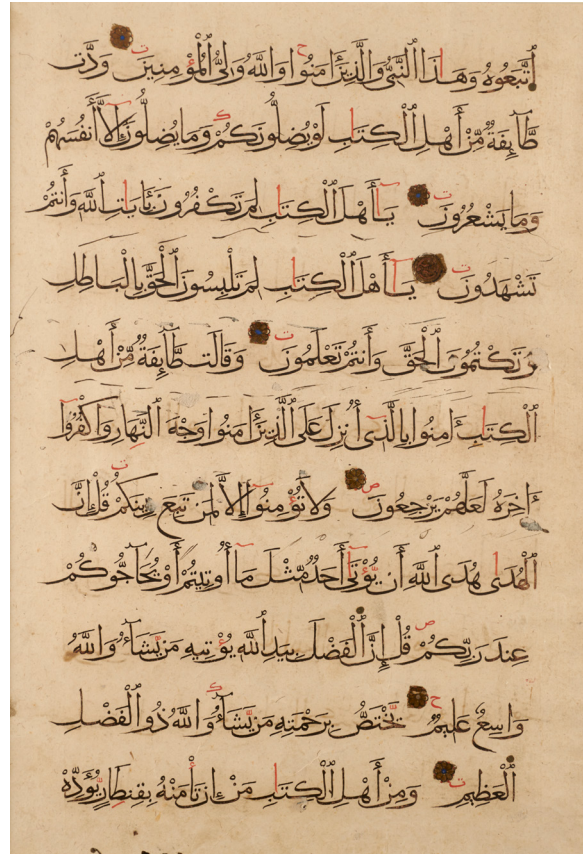 ٱتَّبَعُوهُ وَهَٰذَا ٱلنَّبِىُّ وَٱلَّذِينَ ءَامَنُوا وَٱللَّهُ وَلِىُّ ٱلْمُؤْمِنِينَ وَدَّت
طَّآئِفَةٌ مِّنْ أَهْلِ ٱلْكِتَٰبِ لَوْ يُضِلُّونَكُمْ وَمَا يُضِلُّونَ إِلَّآ أَنفُسَهُمْ
وَمَا يَشْعُرُونَ يَٰٓأَهْلَ ٱلْكِتَٰبِ لِمَ تَكْفُرُونَ بِـَٔايَٰتِ ٱللَّهِ وَأَنتُمْ
تَشْهَدُونَ يَٰٓأَهْلَ ٱلْكِتَٰبِ لِمَ تَلْبِسُونَ ٱلْحَقَّ بِٱلْبَاطِلِ
وَتَكْتُمُونَ ٱلْحَقَّ وَأَنتُمْ تَعْلَمُونَ وَقَالَت طَّآئِفَةٌ مِّنْ أَهْلِ
ٱلْكِتَٰبِ ءَامِنُوا بِٱلَّذِىٓ أُنزِلَ عَلَى ٱلَّذِينَ ءَامَنُوا وَجْهَ ٱلنَّهَارِ وَٱكْفُرُوٓا
ءَاخِرَهُ لَعَلَّهُمْ يَرْجِعُونَ وَلَا تُؤْمِنُوٓا إِلَّا لِمَن تَبِعَ دِينَكُمْ قُلْ إِنَّ
ٱلْهُدَىٰ هُدَى ٱللَّهِ أَن يُؤْتَىٰٓ أَحَدٌ مِّثْلَ مَآ أُوتِيتُمْ أَوْ يُحَآجُّوكُمْ
عِندَ رَبِّكُمْ قُلْ إِنَّ ٱلْفَضْلَ بِيَدِ ٱللَّهِ يُؤْتِيهِ مَن يَشَآءُ وَٱللَّهُ
وَاسِعٌ عَلِيمٌ يَخْتَصُّ بِرَحْمَتِهِ مَن يَشَآءُ وَٱللَّهُ ذُو ٱلْفَضْلِ
ٱلْعَظِيمِ وَمِنْ أَهْلِ ٱلْكِتَٰبِ مَنْ إِن تَأْمَنْهُ بِقِنطَارٍ يُؤَدِّهِ